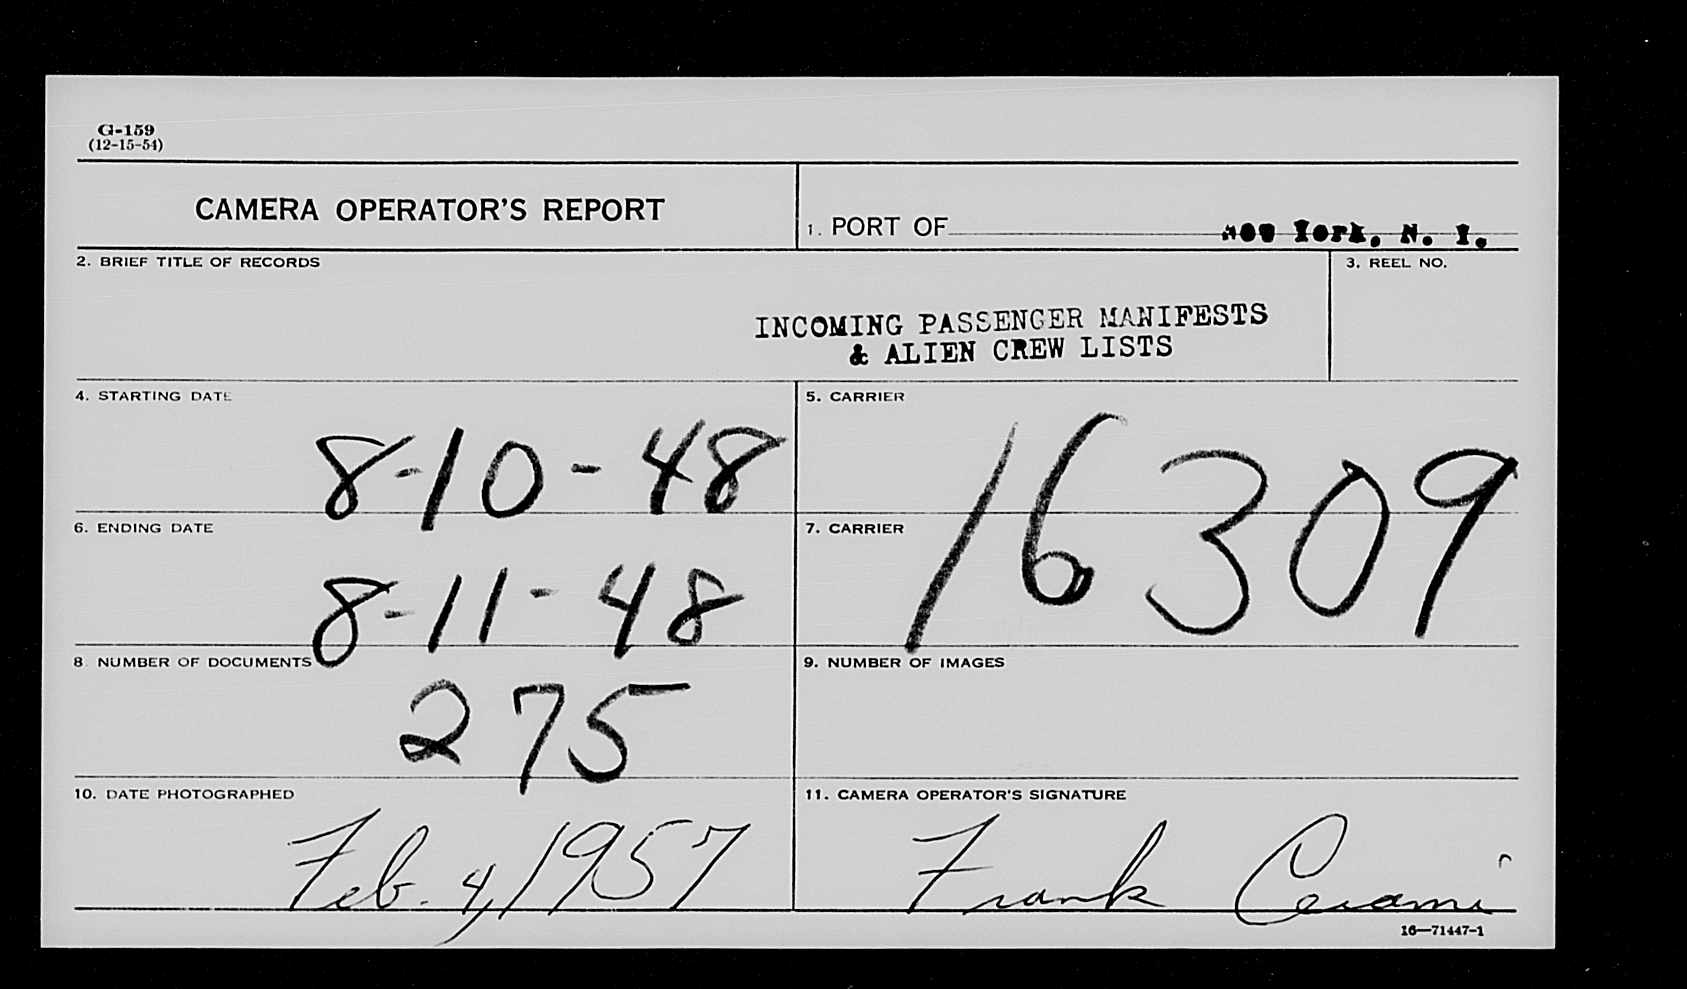 G-159
(12-15-54)
CAMERA OPERATOR'S REPORT
1. PORT OF New York, N. Y.
2. BRIEF TITLE OF RECORDS
3. REEL NO.
INCOMING PASSENGER MANIFESTS
& ALIEN CREW LISTS
4. STARTING DATE
8-10-48
5. CARRIER
16309
6. ENDING DATE
8-11-48
7. CARRIER
8. NUMBER OF DOCUMENTS
275
9. NUMBER OF IMAGES
10. DATE PHOTOGRAPHED
Feb. 4, 1957
11. CAMERA OPERATOR'S SIGNATURE
Frank
16—71447-1